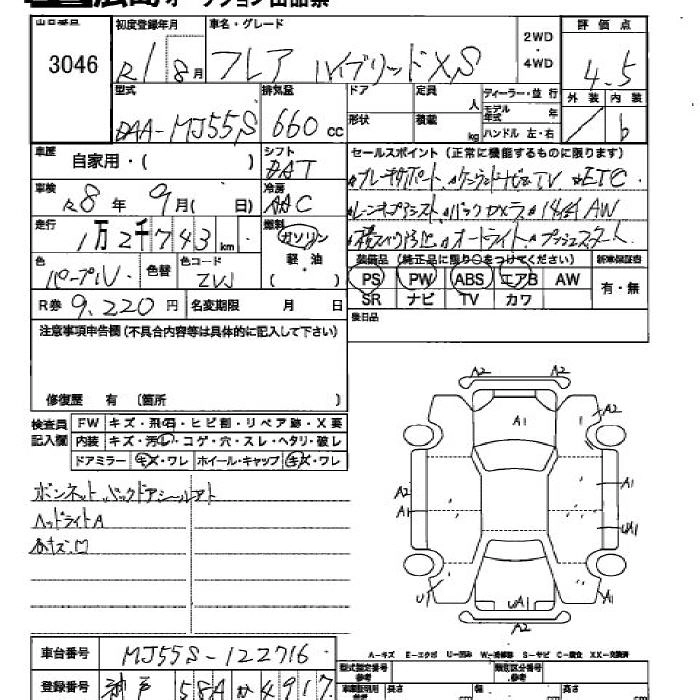 広島 オークション出品票
出品番号 3046
初度登録年月 R1 8月
車名・グレード フレア ハイブリッドXS
2WD・4WD
評価点 4.5
外装 内装 b
型式 DAA-MJ55S
排気量 660cc
ドア 形状
定員 人
積載 kg
ディーラー・並行
モデル年式 年
ハンドル 左・右
車歴 自家用・( )
シフト DAT
車検 R8年 9月( 日)
冷房 AAC
走行 1万2千743km
燃料 ガソリン 軽・油 ( )
色 パープルV 色替 色コード ZVJ
R券 9,220円 名変期限 月 日
セールスポイント(正常に機能するものに限ります)
TV ETC
バックカメラ AW
オートライト プッシュスタート
装備品(純正品に限り○をつけてください) 新車保証書
PS PW ABS エアB AW 有・無
SR ナビ TV カワ
後日品
注意事項申告欄(不具合内容等は具体的に記入して下さい)
修復歴 有 (箇所 )
検査員記入欄
FW キズ・飛石・ヒビ割・リペア跡・X要
内装 キズ・汚レ・コゲ・穴・スレ・ヘタリ・破レ
ドアミラー キズ・ワレ ホイール・キャップ キズ・ワレ
ボンネット、バックドアシールアト
ヘッドライトA
A2
A2
A1
A2
A1
A1
A2
UA1
U1
UA1
A1
A2
A-キズ E-エクボ U-凹み W-補修跡 S-サビ C-腐食 XX-交換済
車台番号 MJ55S-122716
登録番号 神戸 58A か 4917
型式指定番号 参考
類別区分番号 参考
長さ cm 幅 cm 高さ cm